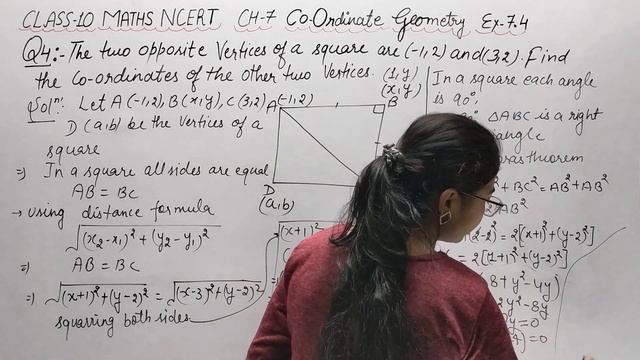 CLASS-10 MATHS NCERT CH-7 Co-Ordinate Geometry Ex-7.4
Q4:- The two opposite Vertices of a square are (-1,2) and (3,2). Find
the Co-ordinates of the other two Vertices.
Solⁿ: Let A(-1,2), B(x,y), C(3,2)
D(a,b) be the Vertices of a
square
=) In a square all sides are equal
AB = BC
→ using distance formula
√(x₂-x₁)²+(y₂-y₁)²
=) AB = BC
=) √(x+1)²+(y-2)² = √(x-3)²+(y-2)²
squarring both sides
A(-1,2)
(1,y)
(x,y)
B
D
(a,b)
(x+1)²
In a square each angle
is 90°,
ΔABC is a right
theorem
BC² = AB²+AB²
AB²
2[(x+1)²+(y-2)²]
= 2[(1+1)²+(y-2)²]
8+y²-4y)
2y²-8y
y=0
)=0